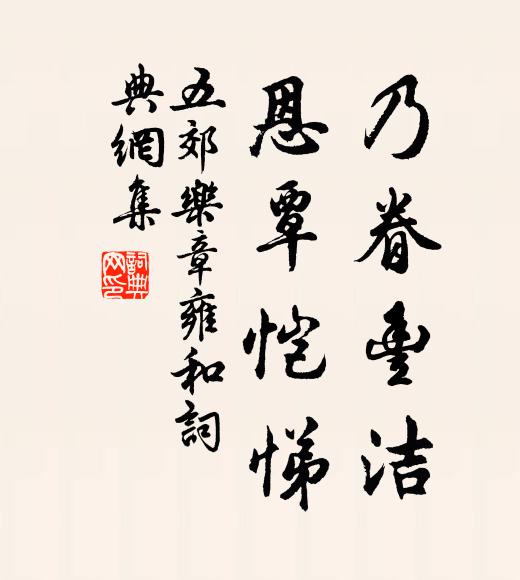 乃眷豊洁
恩覃恺悌
五郊樂章雍和詞
典網集
詞典網印